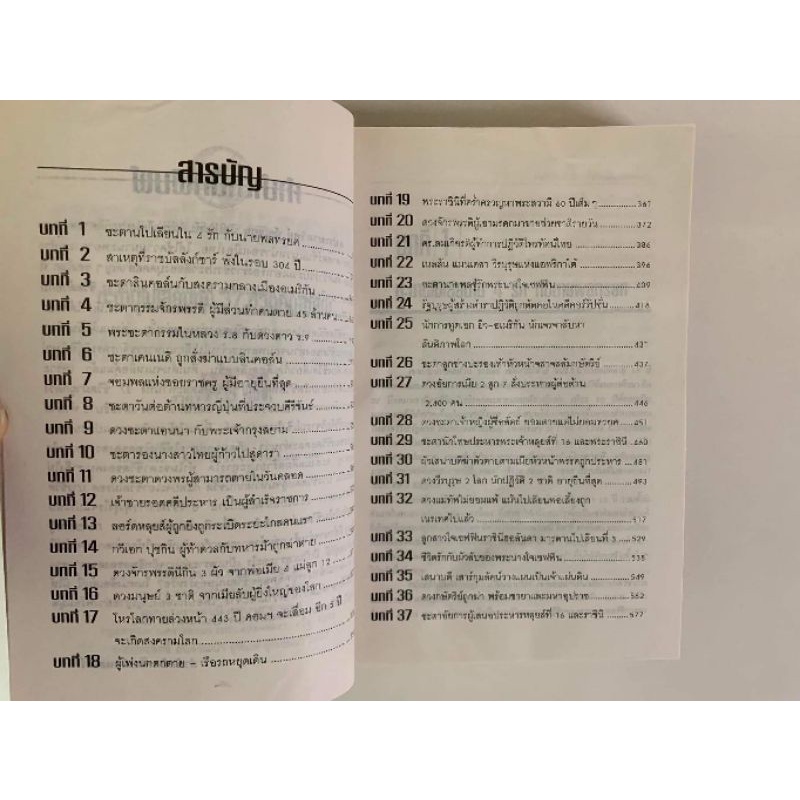 สารบัญ
บทที่ 1 ชะตานโปเลียนใน 4 รัก กับนายพลทรยศ
บทที่ 2 สาเหตุที่ราชบัลลังก์ซาร์ พังในรอบ 304 ปี
บทที่ 3 ชะตาลินคอล์นกับสงครามกลางเมืองอเมริกัน
บทที่ 4 ชะตากรรมจักรพรรดิ ผู้มีส่วนทำคนตาย 45 ล้านคน
บทที่ 5 พระชะตากรรมในหลวง ร.8 กับดวงดาว ร.9
บทที่ 6 ชะตาเคนเนดี ถูกสั่งฆ่าแบบลินคอล์น
บทที่ 7 จอมพลแห่งซอยราชครู ผู้มีอายุยืนที่สุด
บทที่ 8 ชะตาวันต่อต้านทหารญี่ปุ่นที่ประจวบคีรีขันธ์
บทที่ 9 ดวงชะตาแอนนา กับพระเจ้ากรุงสยาม
บทที่ 10 ชะตารองนางสาวไทยผู้ก้าวไปสู่ดารา
บทที่ 11 ดวงชะตาดวงพรผู้สามารถตายในวันคลอด
บทที่ 12 เจ้าชายรอดคดีประหาร เป็นผู้สำเร็จราชการ
บทที่ 13 ลอร์ดหลุยส์ผู้ถูกยิงถูกระเบิดระยะไกลคนแรก
บทที่ 14 กวีเอก ปุชกิน ผู้ท้าดวลกับทหารม้าถูกฆ่าตาย
บทที่ 15 ดวงจักรพรรดินีกิน 3 ผัว จากพ่อเมีย 4 แม่ลูก 12
บทที่ 16 ดวงมนุษย์ 3 ชาติ จากเมียลับผู้ยิ่งใหญ่ของโลก
บทที่ 17 โหรโลกทายล่วงหน้า 443 ปี คอมฯ จะเสื่อม อีก 5 ปี
จะเกิดสงครามโลก
บทที่ 18 ผู้เพ่งนกตกตาย - เรือรถหยุดเดิน
บทที่ 19 พระราชินีที่คร่ำครวญหาพระสวามี 60 ปีเต็มๆ 361
บทที่ 20 372
บทที่ 21 386
บทที่ 22 เนลสัน แมนเดลา วีรบุรุษแห่งแอฟริกาใต้ 396
บทที่ 23 ชะตานายพลชู้รักพระนางโจเซฟิน 409
บทที่ 24 รัฐบุรุษผู้สร้างตำราปฏิวัติถูกตัดคอในคดีคอร์รัปชั่น 418
บทที่ 25 นักการทูตเอก ยิว-อเมริกัน นักเจรจาลับหา
สันติภาพโลก 431
บทที่ 26 437
บทที่ 27 ดวงอัยการเมีย 2 ลูก 7 สั่งประหารผู้ต่อต้าน
2,400 คน 446
บทที่ 28 451
บทที่ 29 ชะตานักโทษประหารพระเจ้าหลุยส์ที่ 16 และพระราชินี 460
บทที่ 30 ผัวเสนาบดีฆ่าตัวตายตามเมียหัวหน้าพรรคถูกประหาร 481
บทที่ 31 ดวงวีรบุรุษ 2 โลก นักปฏิวัติ 2 ชาติ อายุยืนที่สุด 493
บทที่ 32 ดวงแม่ทัพไม่ยอมแพ้ แม้นโปเลียนพ่อเลี้ยงถูก
เนรเทศไปแล้ว 517
บทที่ 33 ลูกสาวโจเซฟินราชินีฮอลันดา มารดานโปเลียนที่ 3 529
บทที่ 34 ชีวิตรักกับผัวลับของพระนางโจเซฟิน 535
บทที่ 35 549
บทที่ 36 ดวงกษัตริย์ถูกฆ่า พร้อมชายาและมหาอุปราช 562
บทที่ 37 ชะตาอัยการผู้เสนอประหารหลุยส์ที่ 16 และราชินี 577